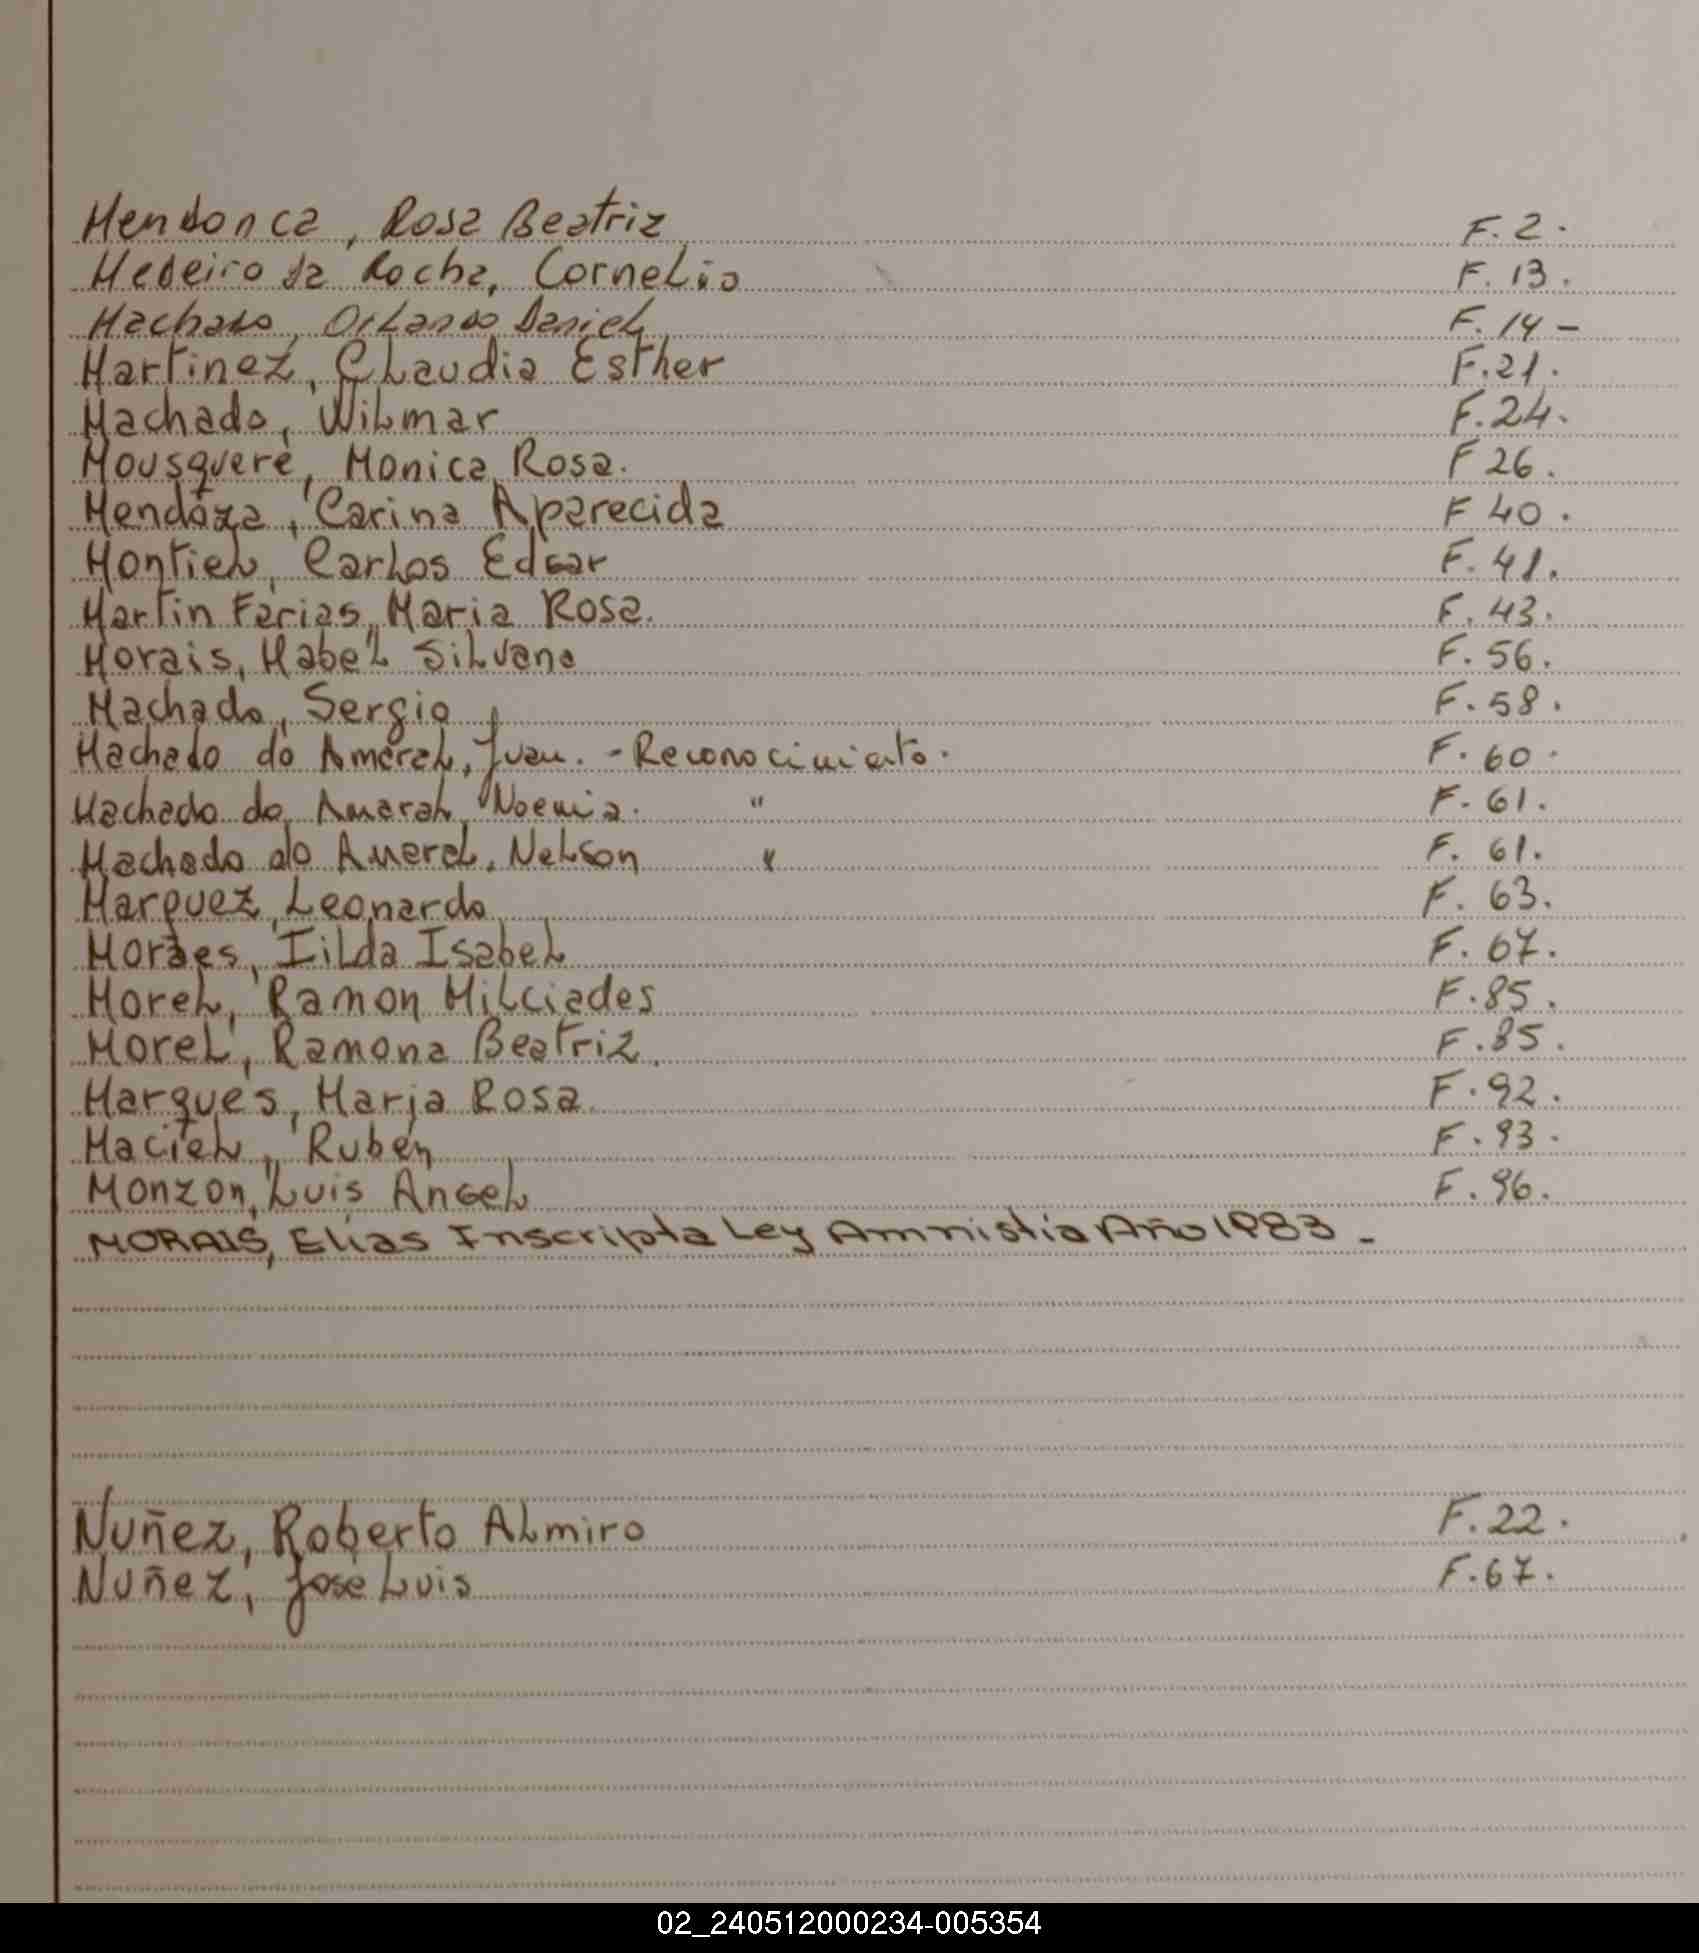 Mendonca, Rosa Beatriz F. 2.
Medeiro da Rocha, Cornelio F. 13.
Machado, Orlando Daniel F. 14 -
Martinez, Claudia Esther F. 21.
Machado, Wilmar F. 24.
Mousquere, Monica Rosa. F 26.
Mendoza, Carina Aparecida F 40.
Montiel, Carlos Edgar F. 41.
Martin Farias, Maria Rosa. F. 43.
Morais, Mabel Silvana F. 56.
Machado, Sergio F. 58.
Machado do Amaral, Juan. - Reconocimiento. F. 60.
Machado do Amaral, Noemia. " F. 61.
Machado do Amaral, Nelson " F. 61.
Marquez, Leonardo F. 63.
Moraes, Iilda Isabel F. 67.
Morel, Ramon Milciades F. 85.
Morel, Ramona Beatriz. F. 85.
Marques, Maria Rosa. F. 92.
Maciel, Rubén F. 93.
Monzon, Luis Angel F. 96.
MORAIS, Elías Inscripta Ley Amnistía Año 1983 -
Nuñez, Roberto Almiro F. 22.
Nuñez, José Luis F. 67.
02_240512000234-005354